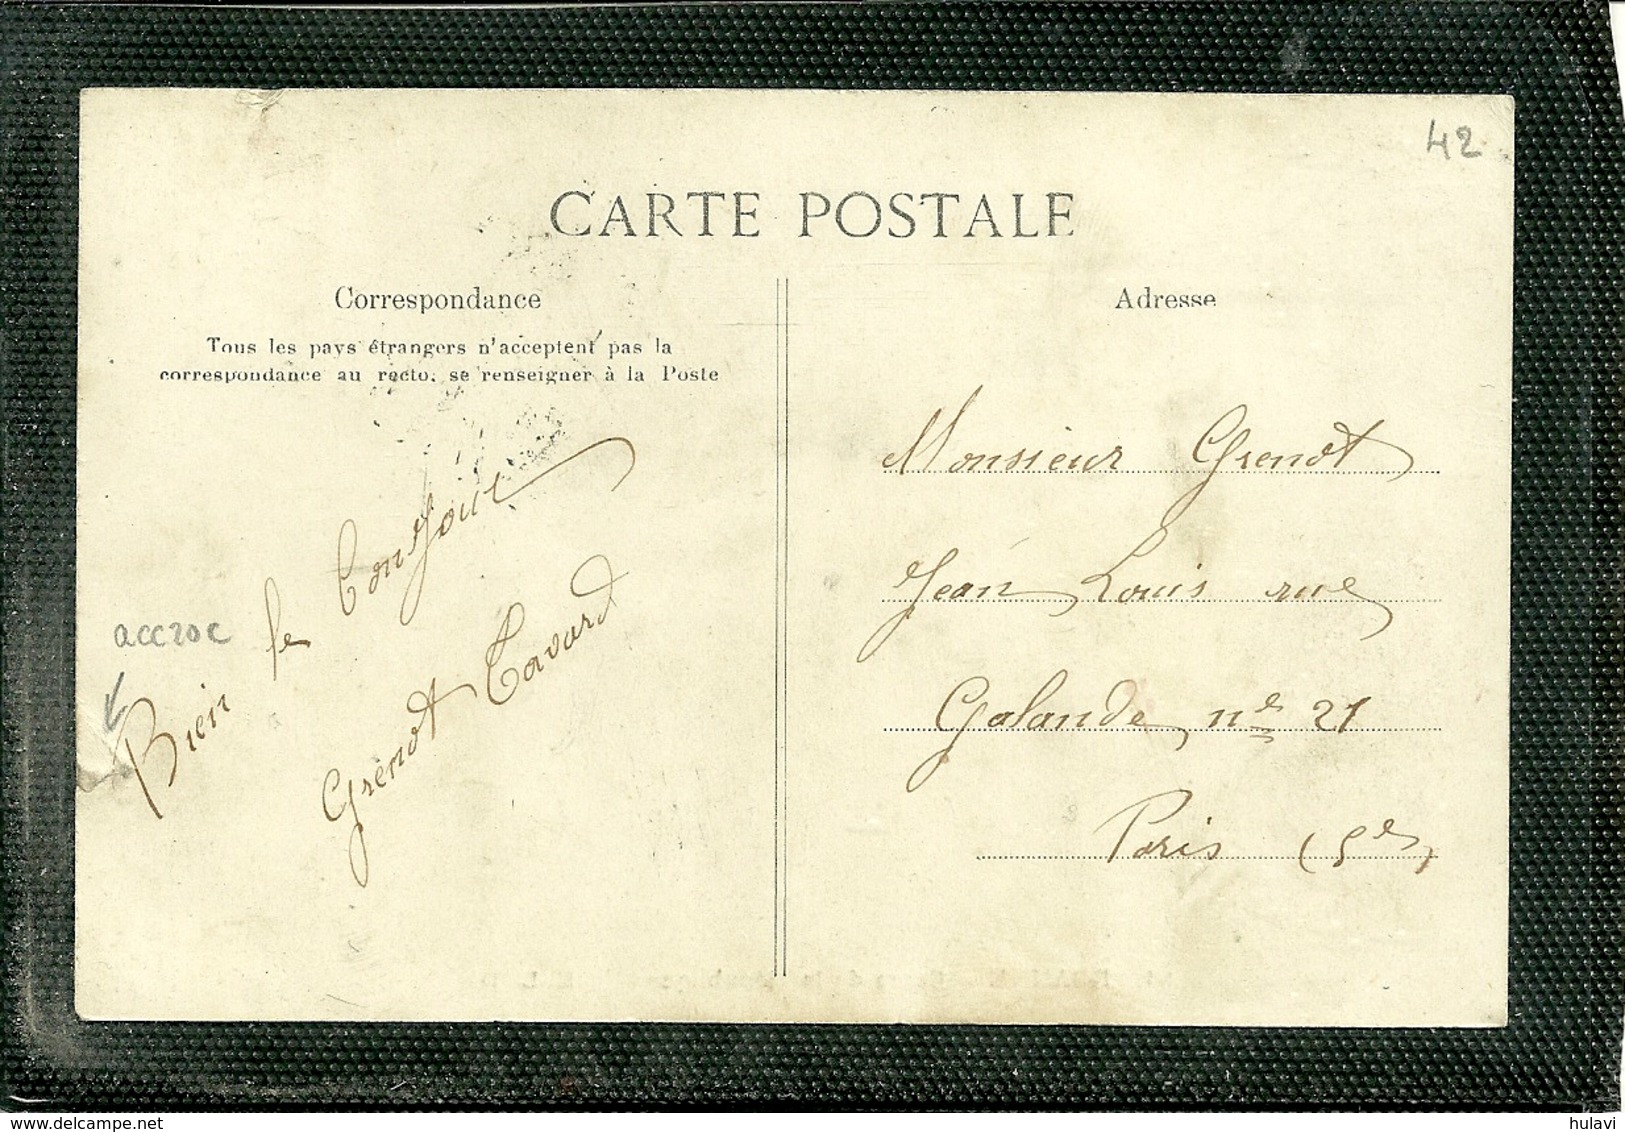 42
CARTE POSTALE
Correspondance
Tous les pays étrangers n'acceptent pas la
correspondance au recto, se renseigner à la Poste
accroc
Bien le Bonjour
Grenot Tavard
Adresse
Monsieur Grenot
Jean Louis rue
Galande nº 21
Paris (5e)
delcampe.net
hulavi